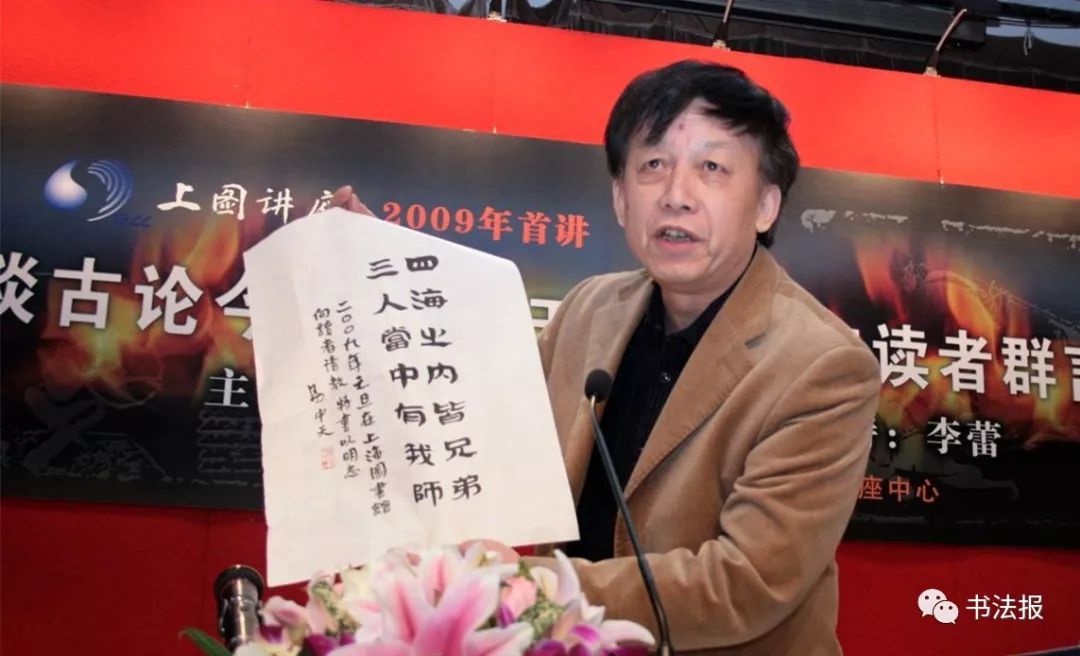 上图讲座
SCL
2009年首讲
谈古论今
读者群言
主
李蕾
座中心
四海之内皆兄弟
三人當中有我師
二〇〇九年元旦在上海圖書館
向讀者請教特書以明志
易中天
书法报